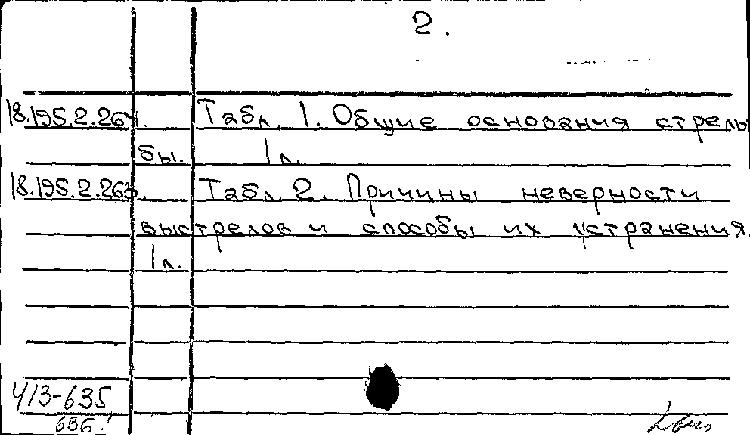 2.
18.195.2.264. Табл. 1. Общие основания стрель
бы. 1 л.
18.195.2.263. Табл. 2. Причины неверности
выстрелов и способы их устранения.
1 л.
Ч13-635
636.